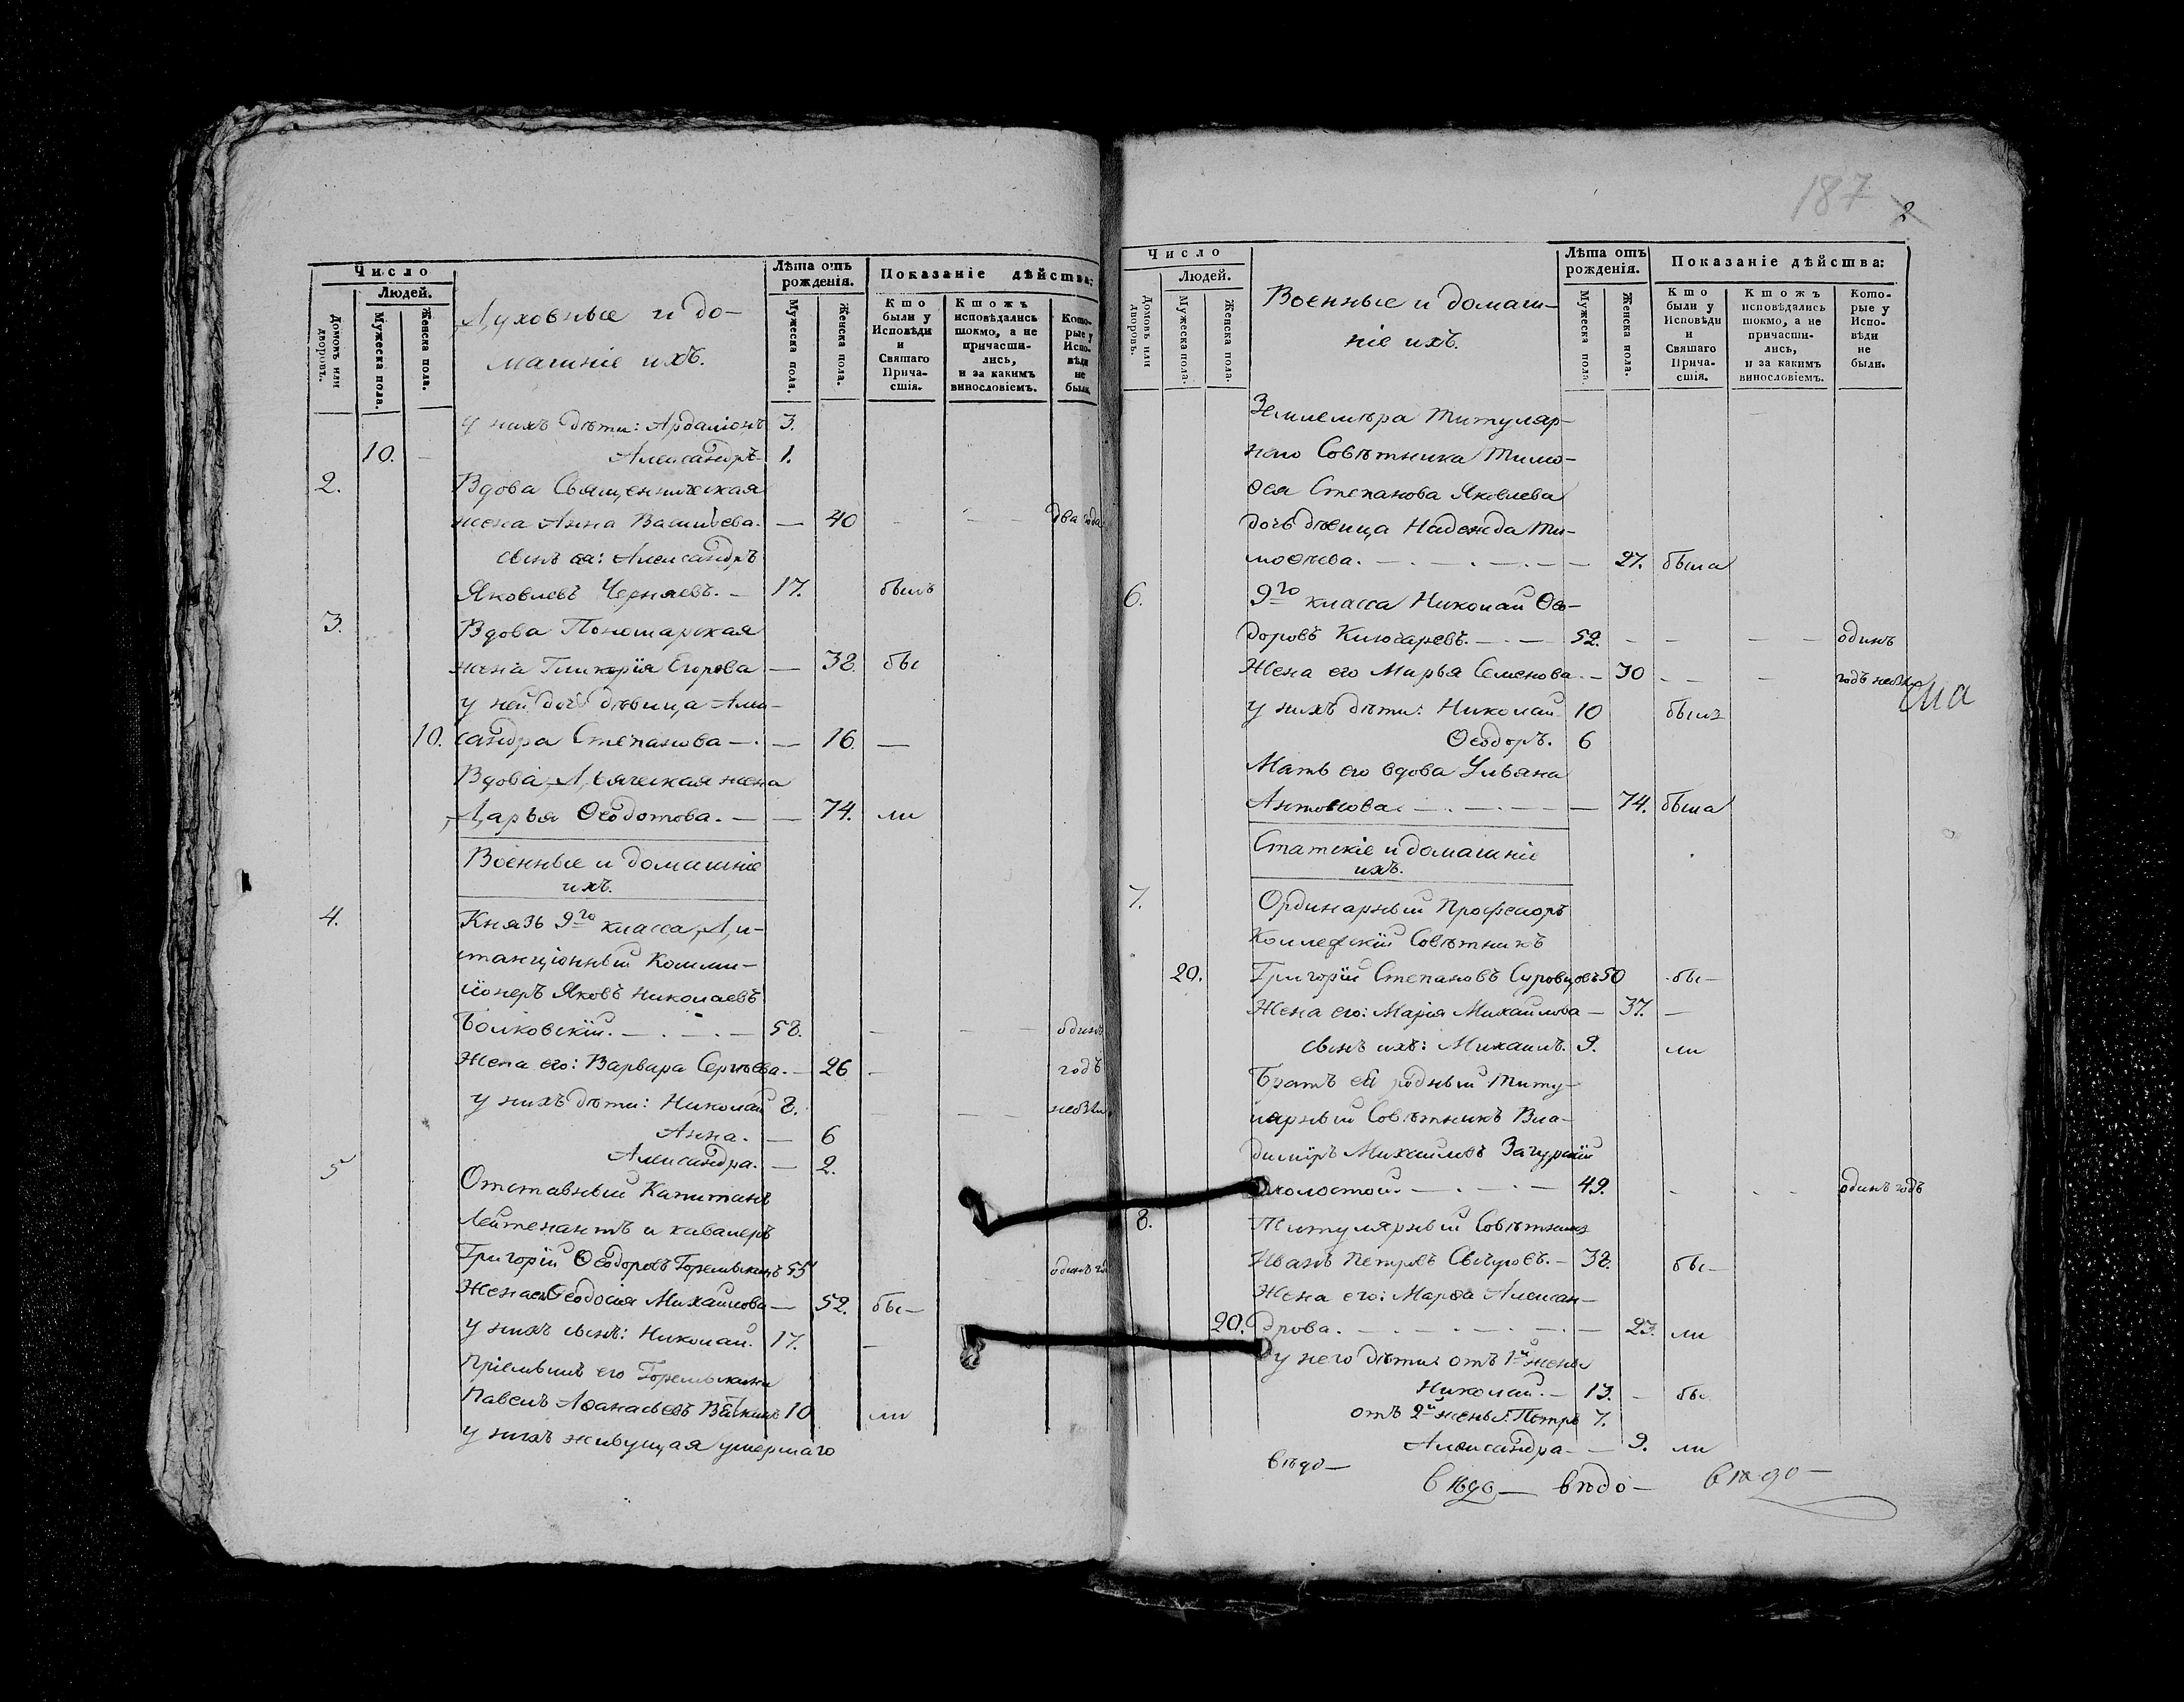 Число
Людей.
Домовъ или дворовъ.
Мужеска пола.
Женска пола.
Духовные и до-
машніе ихъ.
Лѣта отъ рожденія.
Мужеска пола.
Женска пола.
Показаніе дѣйства:
Кто были у Исповѣди и Святаго Прича-стія.
Ктожъ исповѣдались токмо, а не причасти-лись, и за какимъ винословіемъ.
Кото-рые у Испо-вѣди не были.
у нихъ дѣти: Ардаліонъ 3.
10. – Александръ 1.
2. Вдова Священническая
жена Анна Васильева. — 40 два года
сынъ ея: Александръ
Яковлевъ Черняевъ. – 17. былъ
3. Вдова Пономарская
жена Гликерія Егорова — 38 бы
у ней дочь дѣвица Алек-
10. сандра Степанова — 16. —
Вдова Дьяческая жена
Дарья Ѳеодотова. — — 74. ли
Военные и домашніе
ихъ.
4. Князь 9го класса, Ди-
станціонный Комми-
іонеръ Яковъ Николаевъ
58. одинъ
Жена его: Варвара Сергѣева. — 26 – годъ
у нихъ дѣти: Николай 8.
Анна. — 6
Александра. — 2.
5 Отставный Капитанъ
Лейтенантъ и кавалеръ
Григорій Ѳеодоровъ 55 одинъ го
Жена Ѳеодосія Михайлова — 52. бы—
у нихъ сынъ: Николай. 17. —
Пріемышъ его
Павелъ Аѳанасьевъ 10 ли
у нихъ живущая умершаго
187 2
Число
Людей.
Домовъ или дворовъ.
Мужеска пола.
Женска пола.
Военные и домаш-
ніе ихъ.
Лѣта отъ рожденія.
Мужеска пола.
Женска пола.
Показаніе дѣйства:
Кто были у Исповѣди и Святаго Прича-стія.
Ктожъ исповѣдались токмо, а не причасти-лись, и за какимъ винословіемъ.
Кото-рые у Испо-вѣди не были.
Землемѣра Титуляр-
наго Совѣтника Тимо-
ѳея Степанова Яковлева
дочь дѣвица Надежда Ти-
моѳѣева. — 27. была
6. 9го класса Николай Ѳео-
доровъ Ключаревъ. — 52. – – – – одинъ
Жена его Марья Семенова. – 30 – – – годъ
у нихъ дѣти: Николай 10 былъ
Ѳеодоръ. 6
Мать его вдова Ульяна
Антонова. — 74. была
Статскіе и домашніе
ихъ.
7. Ординарный Профессоръ
Коллежскій Совѣтникъ
20. Григорій Степановъ Суровцовъ 50 бы—
Жена его: Марія Михайлова — 37. —
сынъ ихъ: Михаилъ. 9. ли
Братъ ея родный Титу-
лярный Совѣтникъ Вла-
диміръ Михайловъ Загурскій
холостой. — 49. – – – одинъ годъ
8. Титулярный Совѣтникъ
Иванъ Петровъ – 38. бы—
Жена его: Марѳа Алексан-
20. дрова. — 23. ли
у него дѣти отъ 1й жены
Николай. – 13. – бы
отъ 2й жены: Петръ 7.
Александра – — 9. ли
вѣдо— вѣдо— вѣдо— вѣдо—